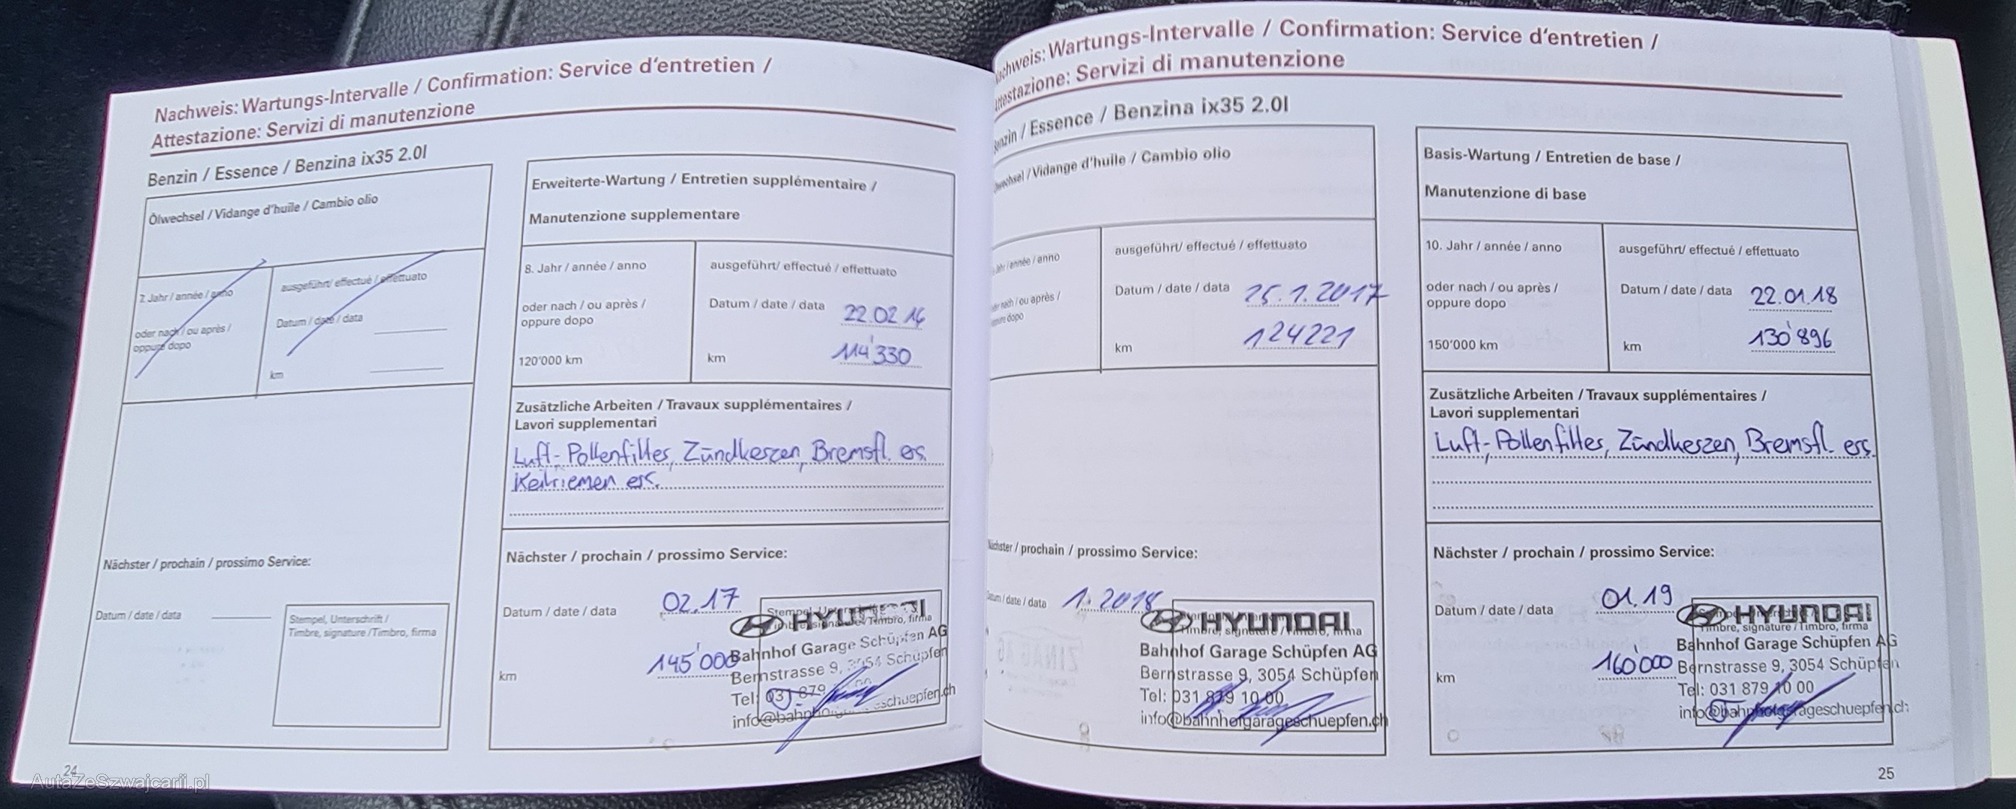 Nachweis: Wartungs-Intervalle / Confirmation: Service d'entretien /
Attestazione: Servizi di manutenzione
Benzin / Essence / Benzina ix35 2.0l
Ölwechsel / Vidange d'huile / Cambio olio
7. Jahr / année / anno
oder nach / ou après /
oppure dopo
ausgeführt / effectué / effettuato
Datum / date / data
km
Nächster / prochain / prossimo Service:
Datum / date / data
Stempel, Unterschrift /
Timbre, signature / Timbro, firma
24
Erweiterte-Wartung / Entretien supplémentaire /
Manutenzione supplementare
8. Jahr / année / anno
oder nach / ou après /
oppure dopo
120'000 km
ausgeführt/ effectué / effettuato
Datum / date / data 22.02 16
km 114'330
Zusätzliche Arbeiten / Travaux supplémentaires /
Lavori supplementari
Luft-Pollenfilter, Zündkerzen, Bremsfl. ers.
Keilriemen ers.
Nächster / prochain / prossimo Service:
Datum / date / data 02.17
km 145'000
HYUNDAI
Bahnhof Garage Schüpfen AG
Bernstrasse 9, 3054 Schüpfen
Tel: 031 879
Nachweis: Wartungs-Intervalle / Confirmation: Service d'entretien /
Attestazione: Servizi di manutenzione
Benzin / Essence / Benzina ix35 2.0l
/ Vidange d'huile / Cambio olio
Jahr / année / anno
nach / ou après /
oppure dopo
ausgeführt/ effectué / effettuato
Datum / date / data 25.1.2017
km 124221
Nächster / prochain / prossimo Service:
Datum / date / data 1. 2018
HYUNDAI
Timbre, signature / Timbro, firma
Bahnhof Garage Schüpfen AG
Bernstrasse 9, 3054 Schüpfen
Tel: 031 879 10 00
info@bahnhofgarageschuepfen.ch
Basis-Wartung / Entretien de base /
Manutenzione di base
10. Jahr / année / anno
oder nach / ou après /
oppure dopo
150'000 km
ausgeführt/ effectué / effettuato
Datum / date / data 22.01.18
km 130'896
Zusätzliche Arbeiten / Travaux supplémentaires /
Lavori supplementari
Luft-,Pollenfilter, Zündkerzen, Bremsfl. ers.
Nächster / prochain / prossimo Service:
Datum / date / data 01.19
km 160'000
HYUNDAI
Timbre, signature / Timbro, firma
Bahnhof Garage Schüpfen AG
Bernstrasse 9, 3054 Schüpfen
Tel: 031 879 10 00
info@bahnhofgarageschuepfen.ch
25
AutaZeSzwajcarii.pl